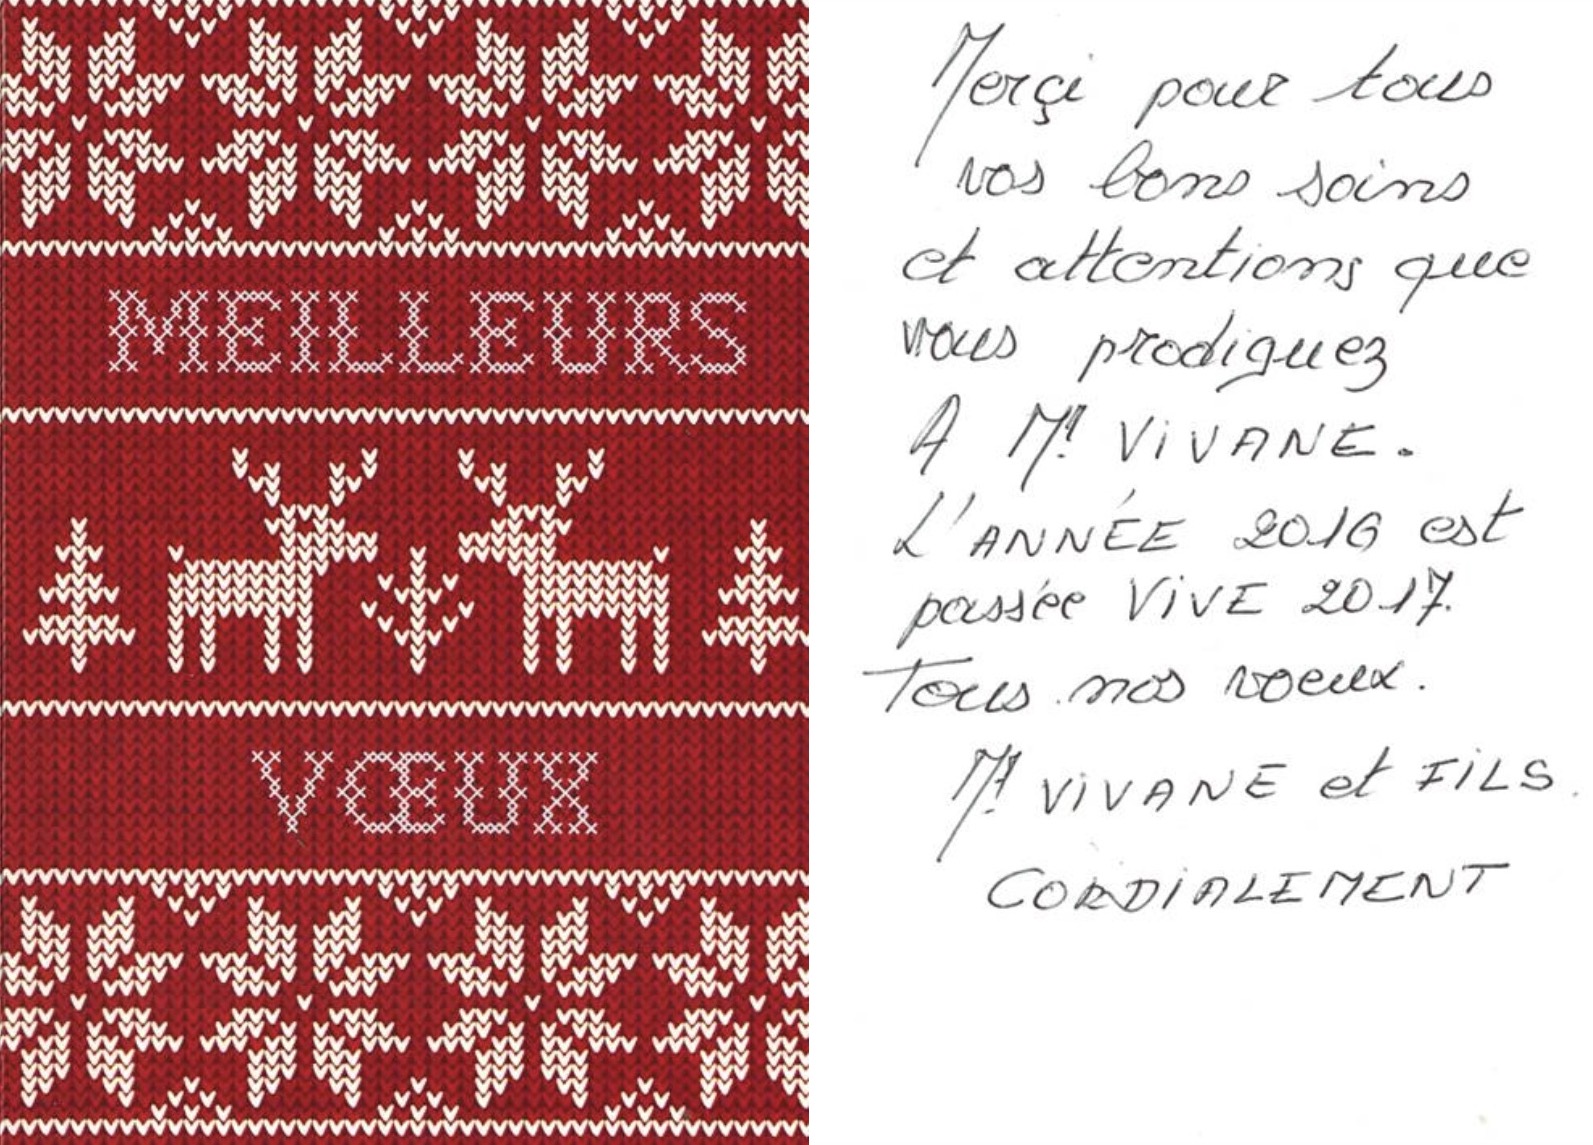 MEILLEURS
VŒUX
Merçi pour tous
vos bons soins
et attentions que
vous prodiguez
A Mr VIVANE.
L'ANNÉE 2016 est
passée VIVE 2017.
Tous nos voeux.
Mr VIVANE et FILS.
CORDIALEMENT